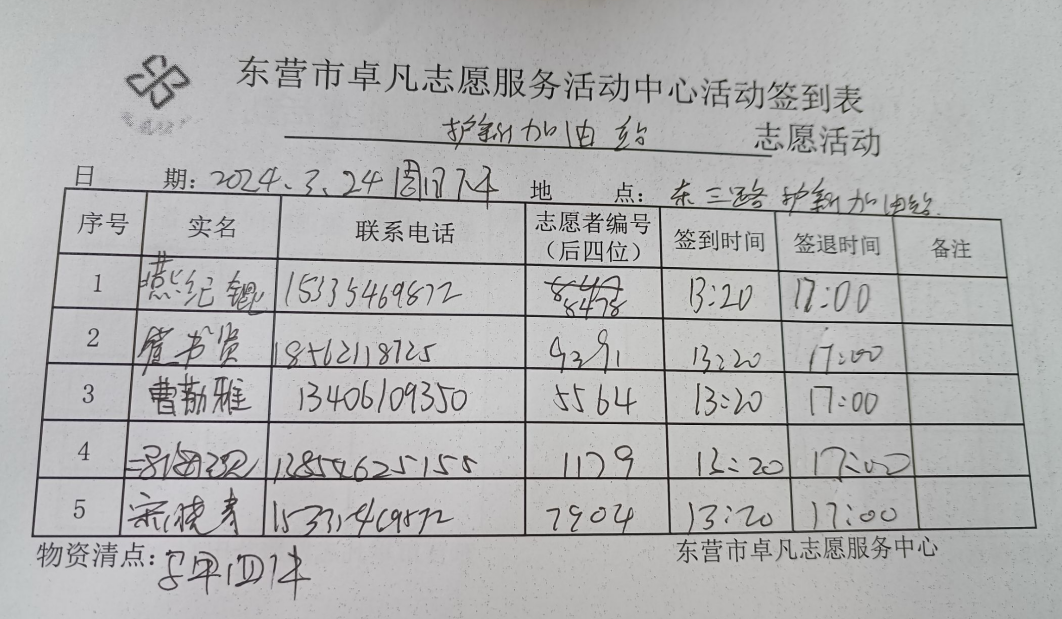 东营市卓凡志愿服务活动中心活动签到表
护新加油站 志愿活动
日 期: 2024.3.24 周日下午 地 点: 东三路护新加油站
序号 实名 联系电话 志愿者编号（后四位） 签到时间 签退时间 备注
1 燕纪锟 15335469872 8478 13:20 17:00
2 18562118725 9391 13:20 17:00
3 曹勤雅 13406109350 5564 13:20 17:00
4 13854625155 1179 13:20 17:00
5 宋晓春 15335469872 7904 13:20 17:00
物资清点: 马甲四件
东营市卓凡志愿服务中心